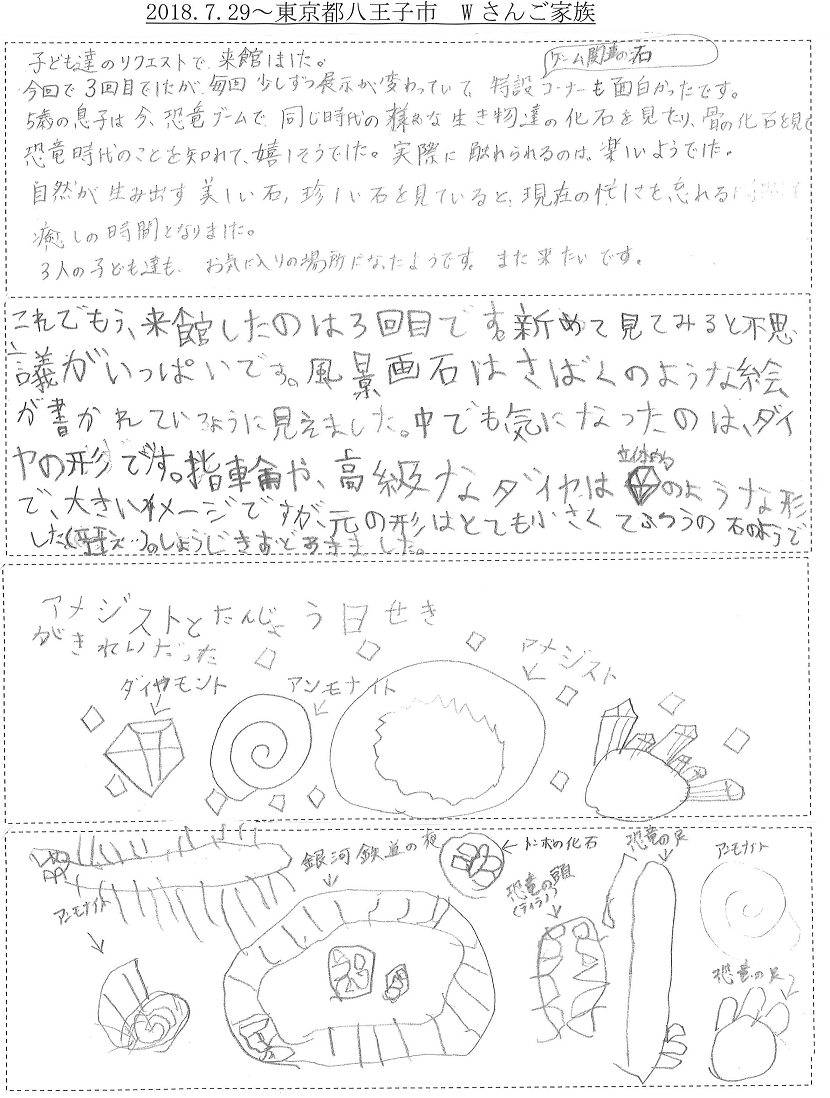 2018.7.29～東京都八王子市　Wさんご家族
子ども達のリクエストで、来館しました。
ゲーム関連の石
今回で3回目でしたが、毎回少しずつ展示が変わっていて、特設コーナーも面白かったです。
5歳の息子は今、恐竜ブームで、同じ時代の様々な生き物達の化石を見たり、骨の化石を見て
恐竜時代のことを知れて、嬉しそうでした。実際に触れられるのは、楽しいようでした。
自然が生み出す美しい石、珍しい石を見ていると、現在の忙しさを、忘れる
癒しの時間となりました。
3人の子ども達も、お気に入りの場所になったようです。また来たいです。
これでもう、来館したのは3回目です。新めて見てみると不思
議がいっぱいです。風景画石はさばくのような絵
が書かれているように見えました。中でも気になったのは、ダイ
ヤの形です。指輪や、高級なダイヤは立体的のような形
で、大きいイメージですが、元の形はとても小さくてふつうの石のようで
した。しょうじきおどろきました。
アメジストとたんじょう日せき
がきれいだった
アメジスト
ダイヤモンド
アンモナイト
銀河鉄道の夜
トンボの化石
恐竜の足
アンモナイト
恐竜の頭
(ティラノ)
アンモナイト
恐竜の足